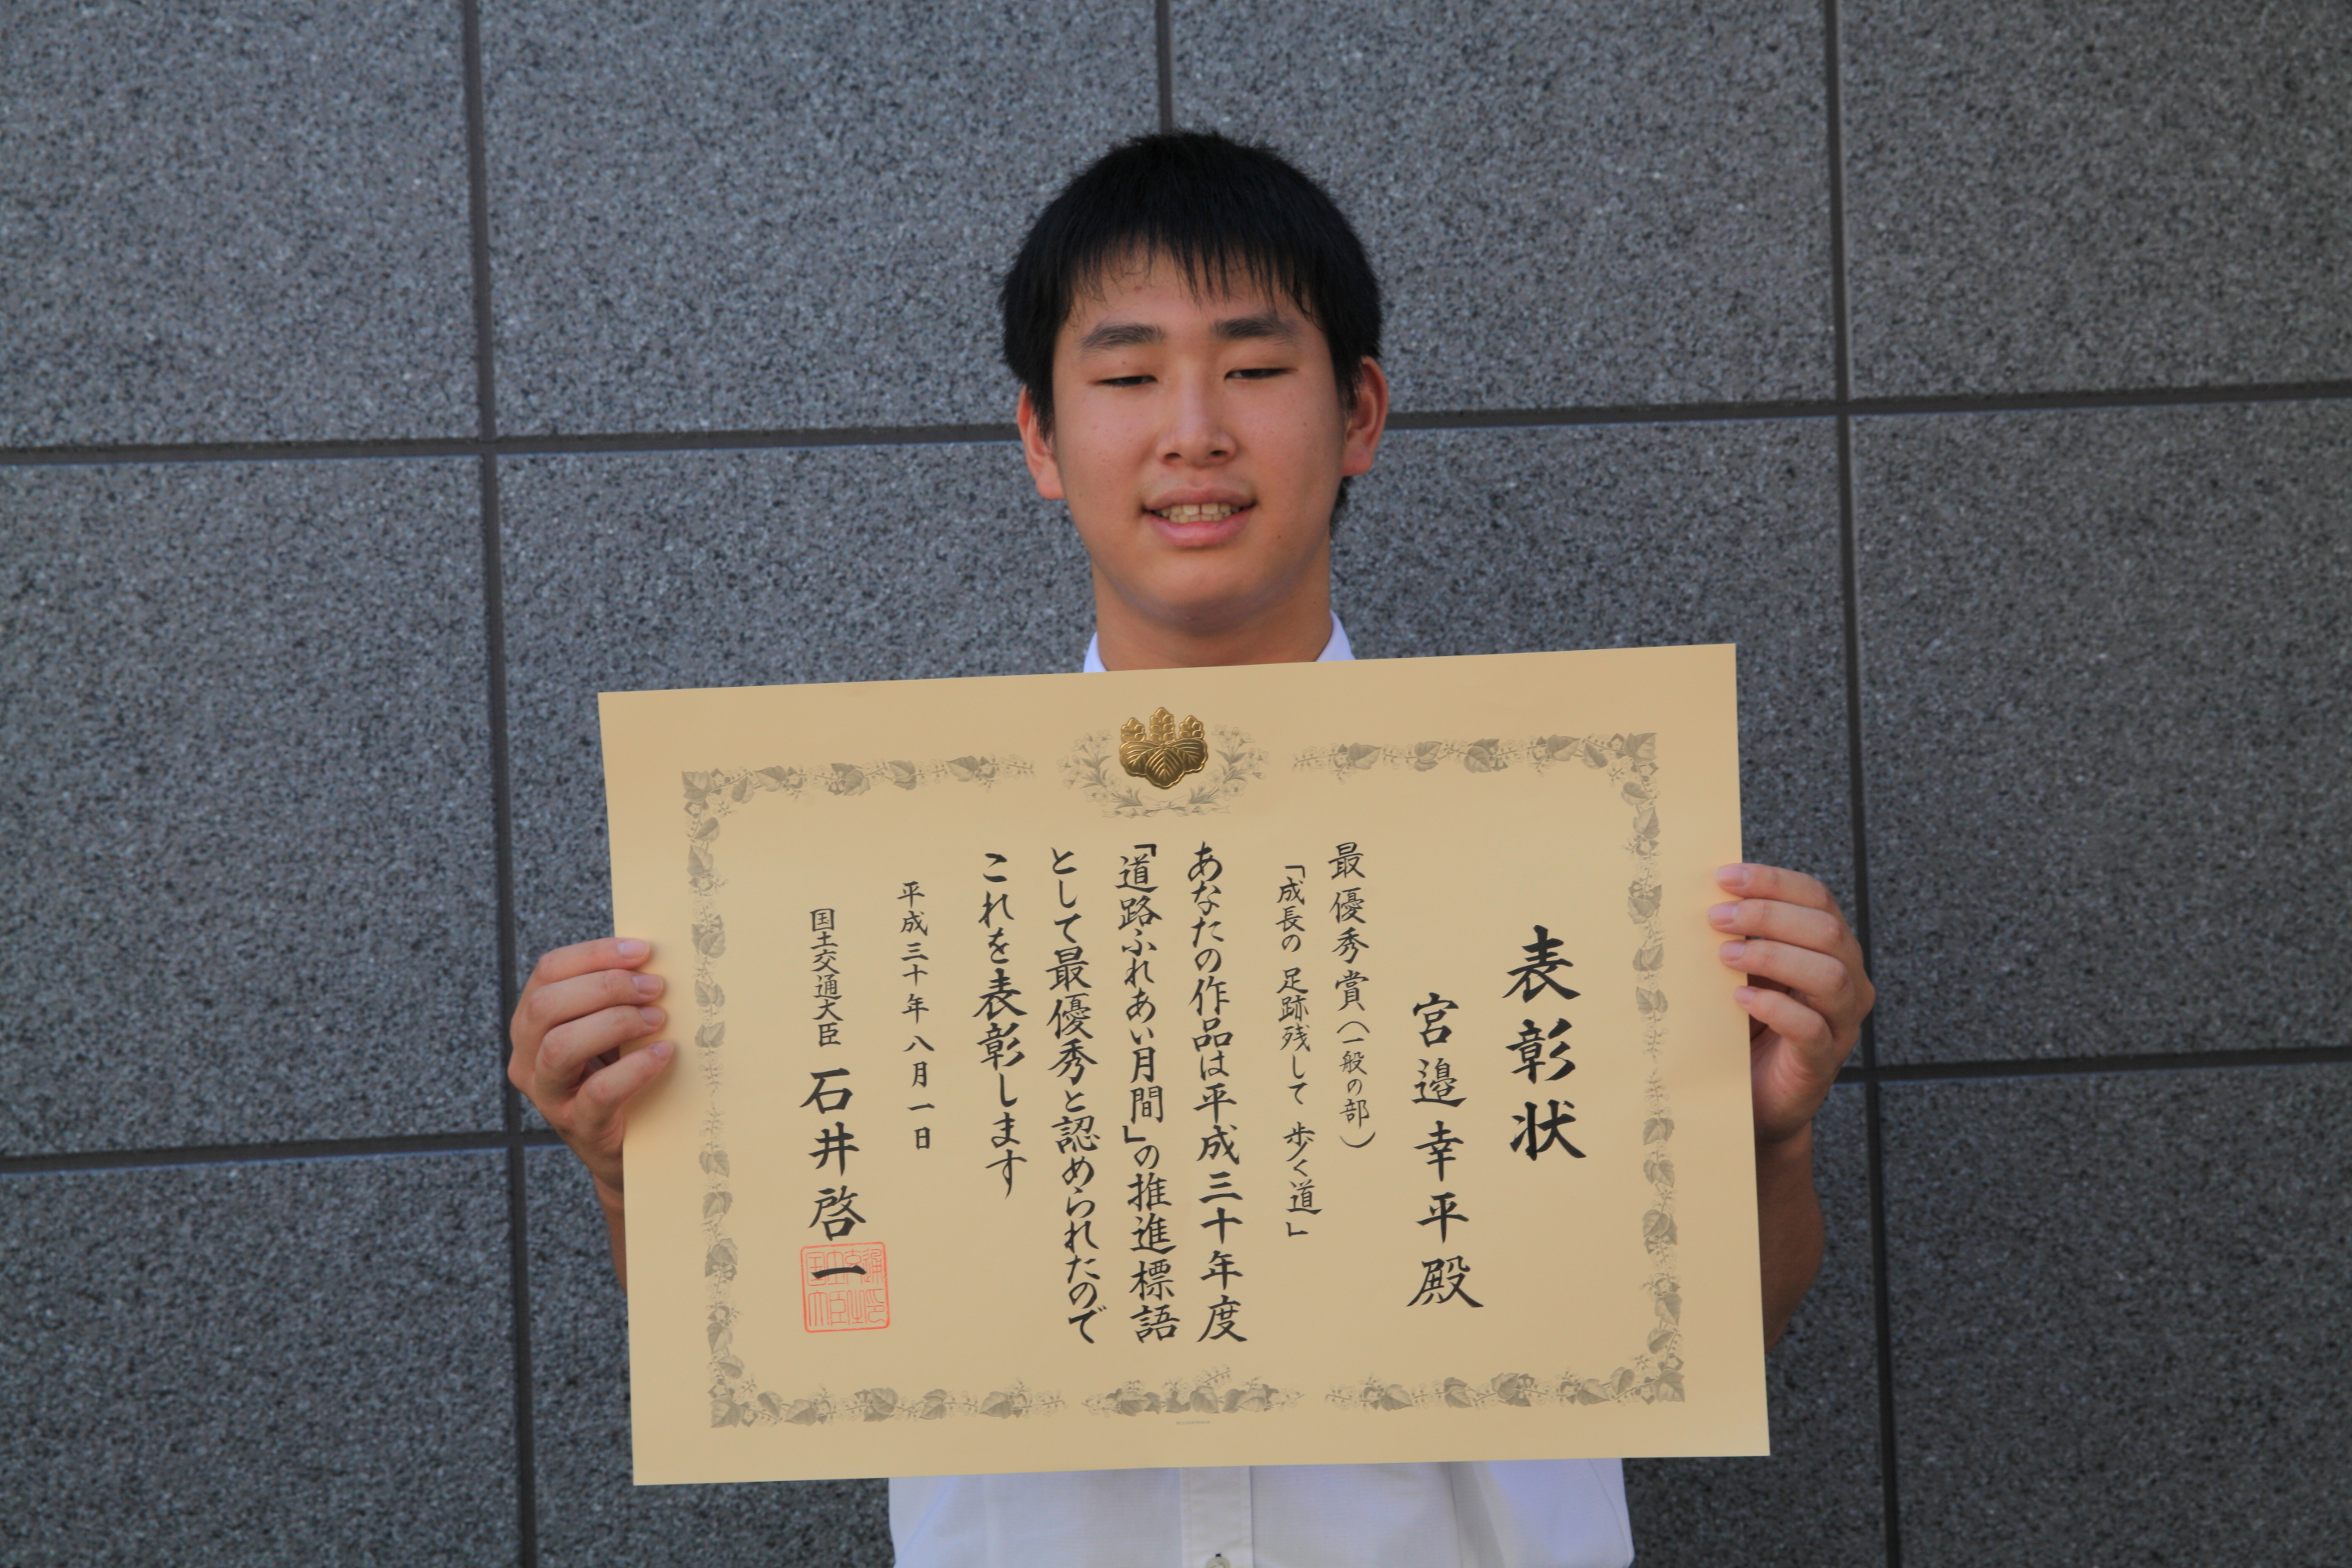 表彰状
宮邉幸平殿
最優秀賞（一般の部）
「成長の 足跡残して 歩く道」
あなたの作品は平成三十年度
「道路ふれあい月間」の推進標語
として最優秀と認められたので
これを表彰します
平成三十年八月一日
国土交通大臣 石井啓一